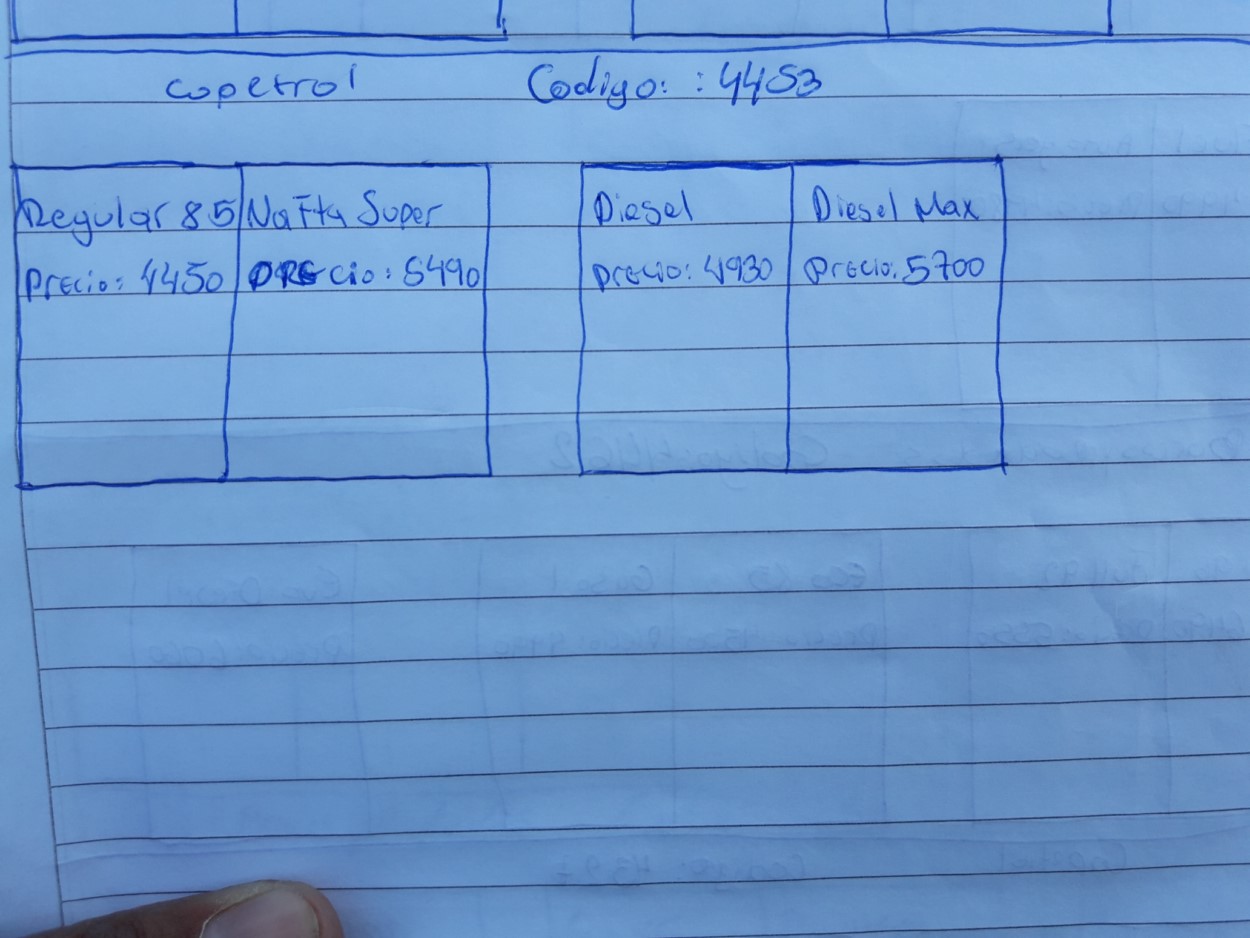 copetrol Codigo: : 4453
Regular 85 Nafta Super Diesel Diesel Max
Precio: 4450 Precio: 5490 Precio: 4930 Precio: 5700